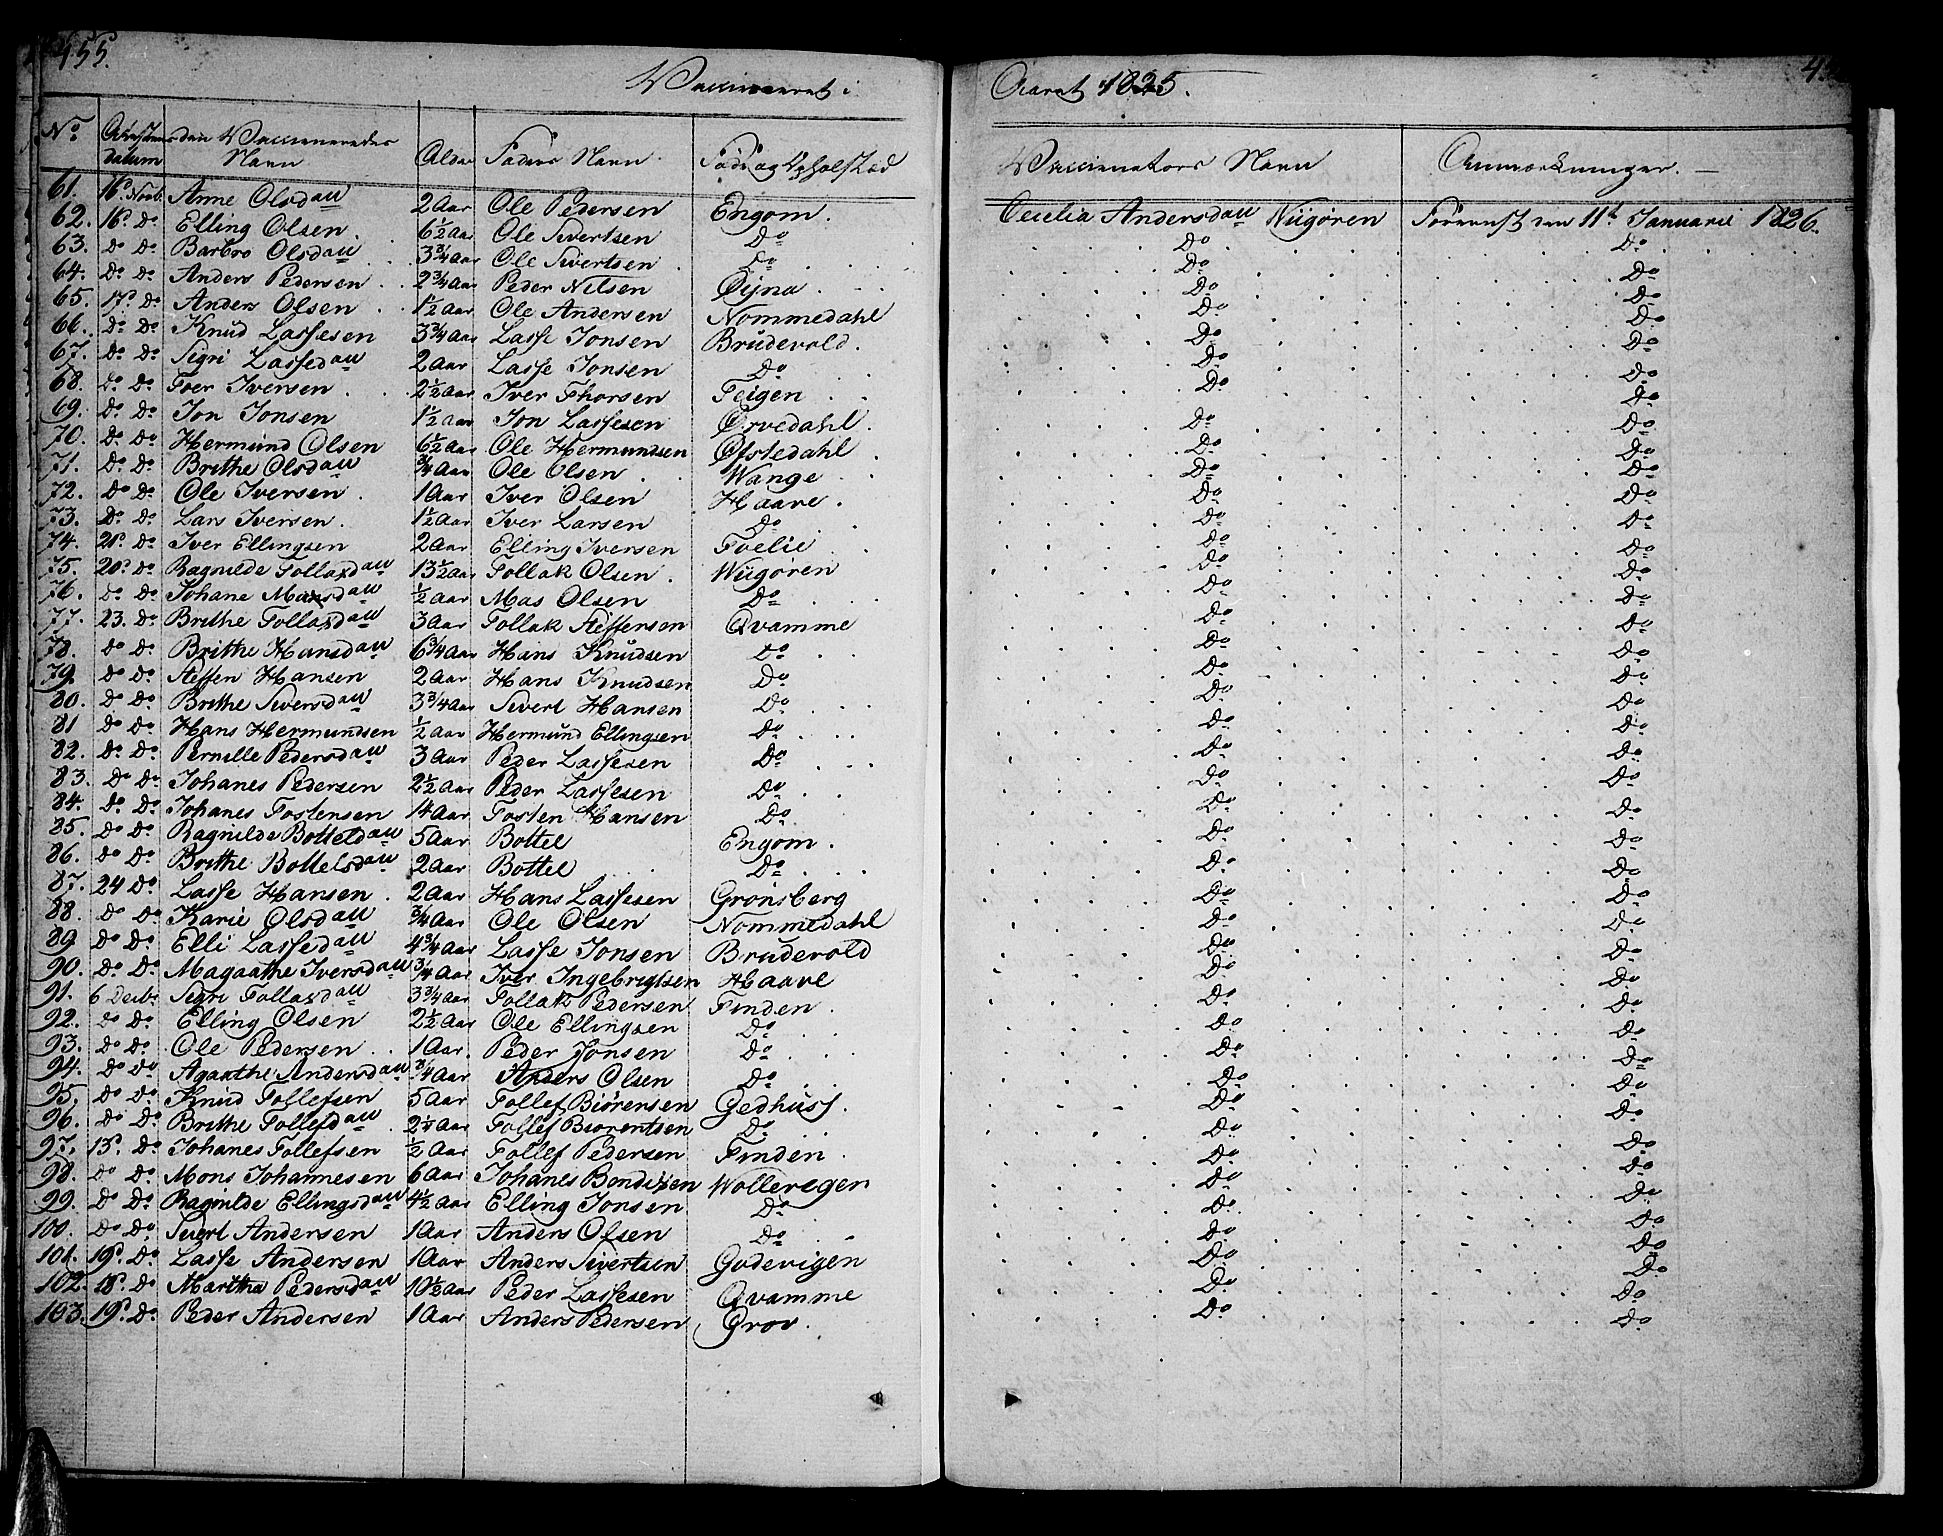 455.
Vaccineret i
Aaret 1825.
No Attestens datum den Vaccineredes Navn Alder Faders Navn Føde og Opholsted Vaccinators Navn Anmærkninger.
61. 16d Novb. Anne Olsdatt 2 Aar Ole Pedersen Engom. Cecilia Andersdatt Nügören den 11t Januarii 1826.
62. 16d Do Elling Olsen 6½ Aar Ole Sivertsen Do Do Do
63. Do Do Barbro Olsdatt 3¾ Aar Ole Sivertsen Do Do Do
64. Do Do Anders Pedersen 2¾ Aar Peder Nilsen Øijna Do Do
65. 17d Do Anders Olsen 1½ Aar Ole Andersen Nommedahl Do Do
66. Do Do Knud Lassesen 3¾ Aar Lasse Jonsen Brudevold. Do Do
67. Do Do Sigri Lassedatt 2 Aar Lasse Jonsen Do Do Do
68. Do Do Toer Iversen 2½ Aar Iver Thorsen Teigen Do Do
69. Do Do Jon Jonsen 1½ Aar Jon Lassesen Ørvedahl. Do Do
70. Do Do Hermund Olsen 6½ Aar Ole Hermundsen Øfstedahl Do Do
71. Do Do Brithe Olsdatt ¾ Aar Ole Olsen Wange Do Do
72. Do Do Ole Iversen 1 Aar Iver Olsen Haave Do Do
73. Do Do Lars Iversen 1½ Aar Iver Larsen Do Do Do
74. 21d Do Iver Ellingsen 2 Aar Elling Iversen Foelie Do Do
75. 20d Do Ragnilde Tollaxdatt 13½ Aar Tollak Olsen Wügören Do Do
76. Do Do Johane Masdatt ½ Aar Mas Olsen Do Do Do
77. 23. Do Brithe Tollaxdatt 3 Aar Tollak Steffensen Qvamme Do Do
78. Do Do Brithe Hansdatt 6¾ Aar Hans Knudsen Do Do Do
79. Do Do Steffen Hansen 2 Aar Hans Knudsen Do Do Do
80. Do Do Brithe Siversdatt 3¾ Aar Sivert Hansen Do Do Do
81 Do Do Hans Hermundsen ½ Aar Hermund Ellingsen Do Do Do
82. Do Do Pernille Pedersdatt 3 Aar Peder Lassesen Do Do Do
83. Do Do Johanes Pedersen 2½ Aar Peder Lassesen Do Do Do
84. Do Do Johanes Tostensen 14 Aar Tosten Hansen Do Do Do
85. Do Do Ragnilde Botteldatt 5 Aar Bottel Engom. Do Do
86. Do Do Brithe Bottelsdatt 2 Aar Bottel Do Do Do
87. 24 Do Lasse Hansen 2 Aar Hans Lassesen Grönsberg Do Do
88. Do Do Karie Olsdatt ¾ Aar Ole Olsen Nommedahl Do Do
89 Do Do Elli Lassedatt 4¾ Aar Lasse Jonsen Brudevold Do Do
90. Do Do Magaathe Iversdatt ¾ Aar Iver Ingebrigtsen Haave Do Do
91. 6 Decbr Sigri Tollaxdatt 3¾ Aar Tollak Pedersen Finden Do Do
92. Do Do Elling Olsen 2½ Aar Ole Ellingsen Do Do Do
93. Do Do Ole Pedersen 1 Aar Peder Jonsen Do Do Do
94. Do Do Agaathe Andersdatt ¾ Aar Anders Olsen Do Do Do
95. Do Do Knud Tollefsen 5 Aar Tollef Biörensen Gedhuss. Do Do
96. Do Do Brithe Tollefsdatt 2¼ Aar Tollef Biorentsen Do Do Do
97. 13d Do Johanes Tollefsen ½ Aar Tollef Pedersen Finden Do Do
98. Do Do Mons Johannesen 6 Aar Johanes Bendixen Wollevegen Do Do
99. Do Do Ragnilde Ellingsdatt 4½ Aar Elling Jonsen Do Do Do
100. Do Do Sivert Andersen 1 Aar Anders Olsen Do Do Do
101. 19d Do Lasse Andersen 1 Aar Anders Sivertsen Godevigen Do Do
102. 18d Do Martha Pedersdatt 10½ Aar Peder Lassesen Qvamme Do Do
103. 19d Do Peder Andersen 1 Aar Anders Pedersen Grov. Do Do